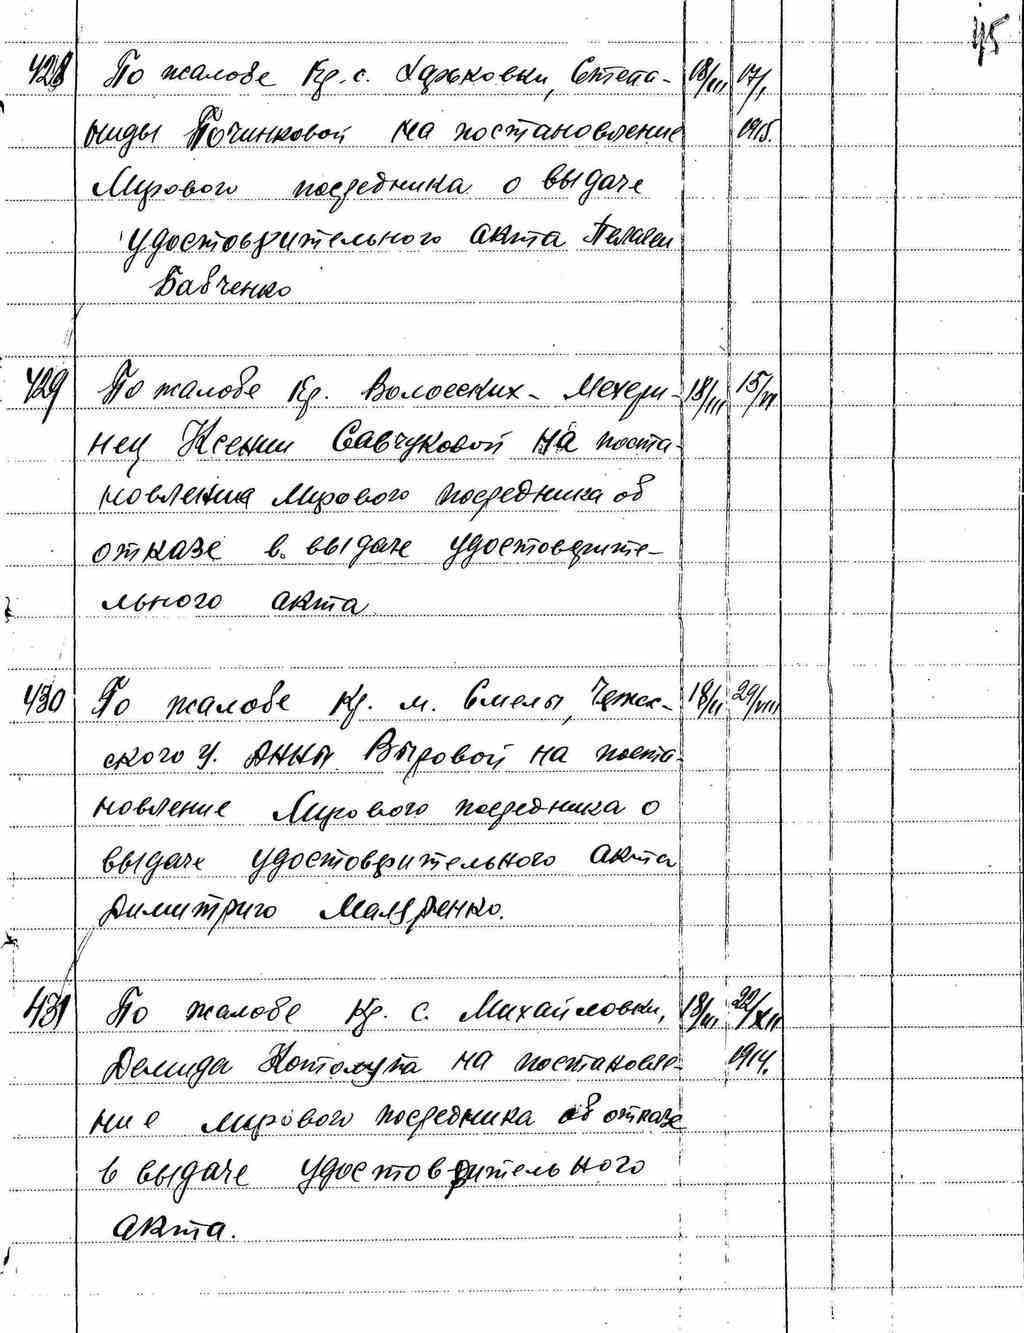 45
428 По жалобе Кр. с. Юрковки, Степа- 18/III 17/I
ниды Починковой на постановление 1915.
Мирового посредника о выдаче
удостоверительного акта Пелагеи
Бабченко
429 По жалобе Кр. Волосских- 18/III 15/VI
нец Ксении Савчуковой на поста-
новления Мирового посредника об
отказе в выдаче удостоверите-
льного акта
430 По жалобе Кр. м. Смелы, 18/III 29/VIII
ского у. Анны Выровой на поста-
новление Мирового посредника о
выдаче удостоверительного акта
Димитрию
431 По жалобе Кр. с. Михайловки, 18/III 22/XII
Демида на постановле- 1914.
ние мирового посредника об отказе
в выдаче удостоверительного
акта.